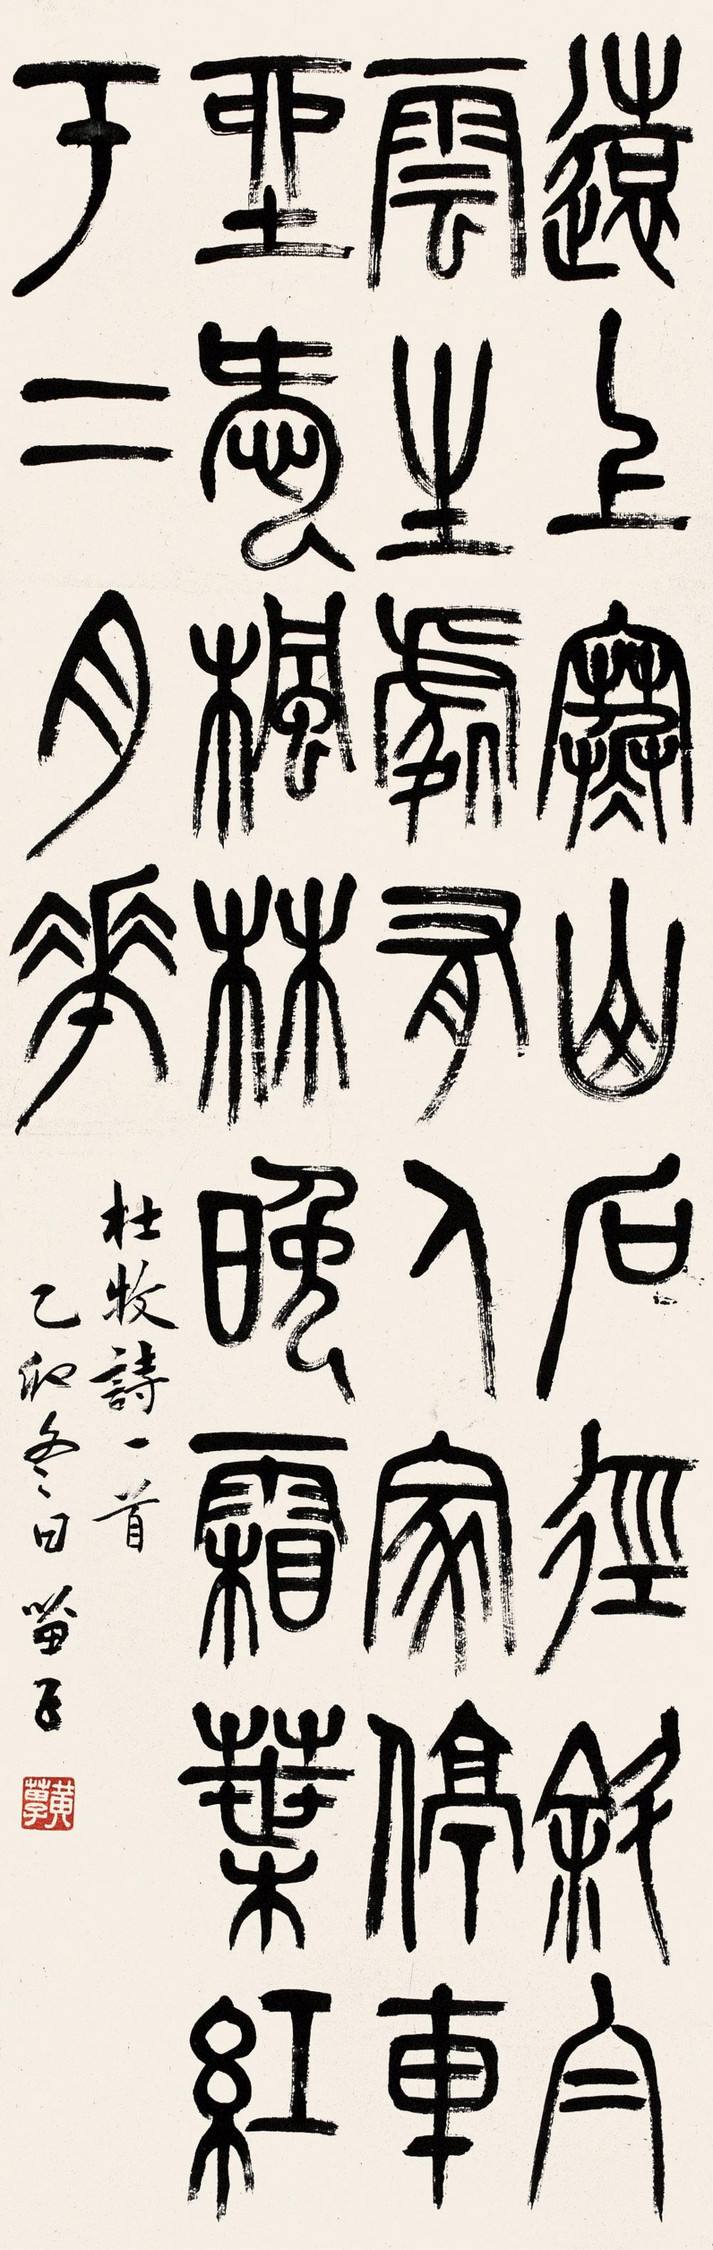 遠上寒山石徑斜白
雲生處有人家停車
坐愛楓林晚霜葉紅
于二月華
杜牧詩一首
乙卯冬日 苗子
黃苗子